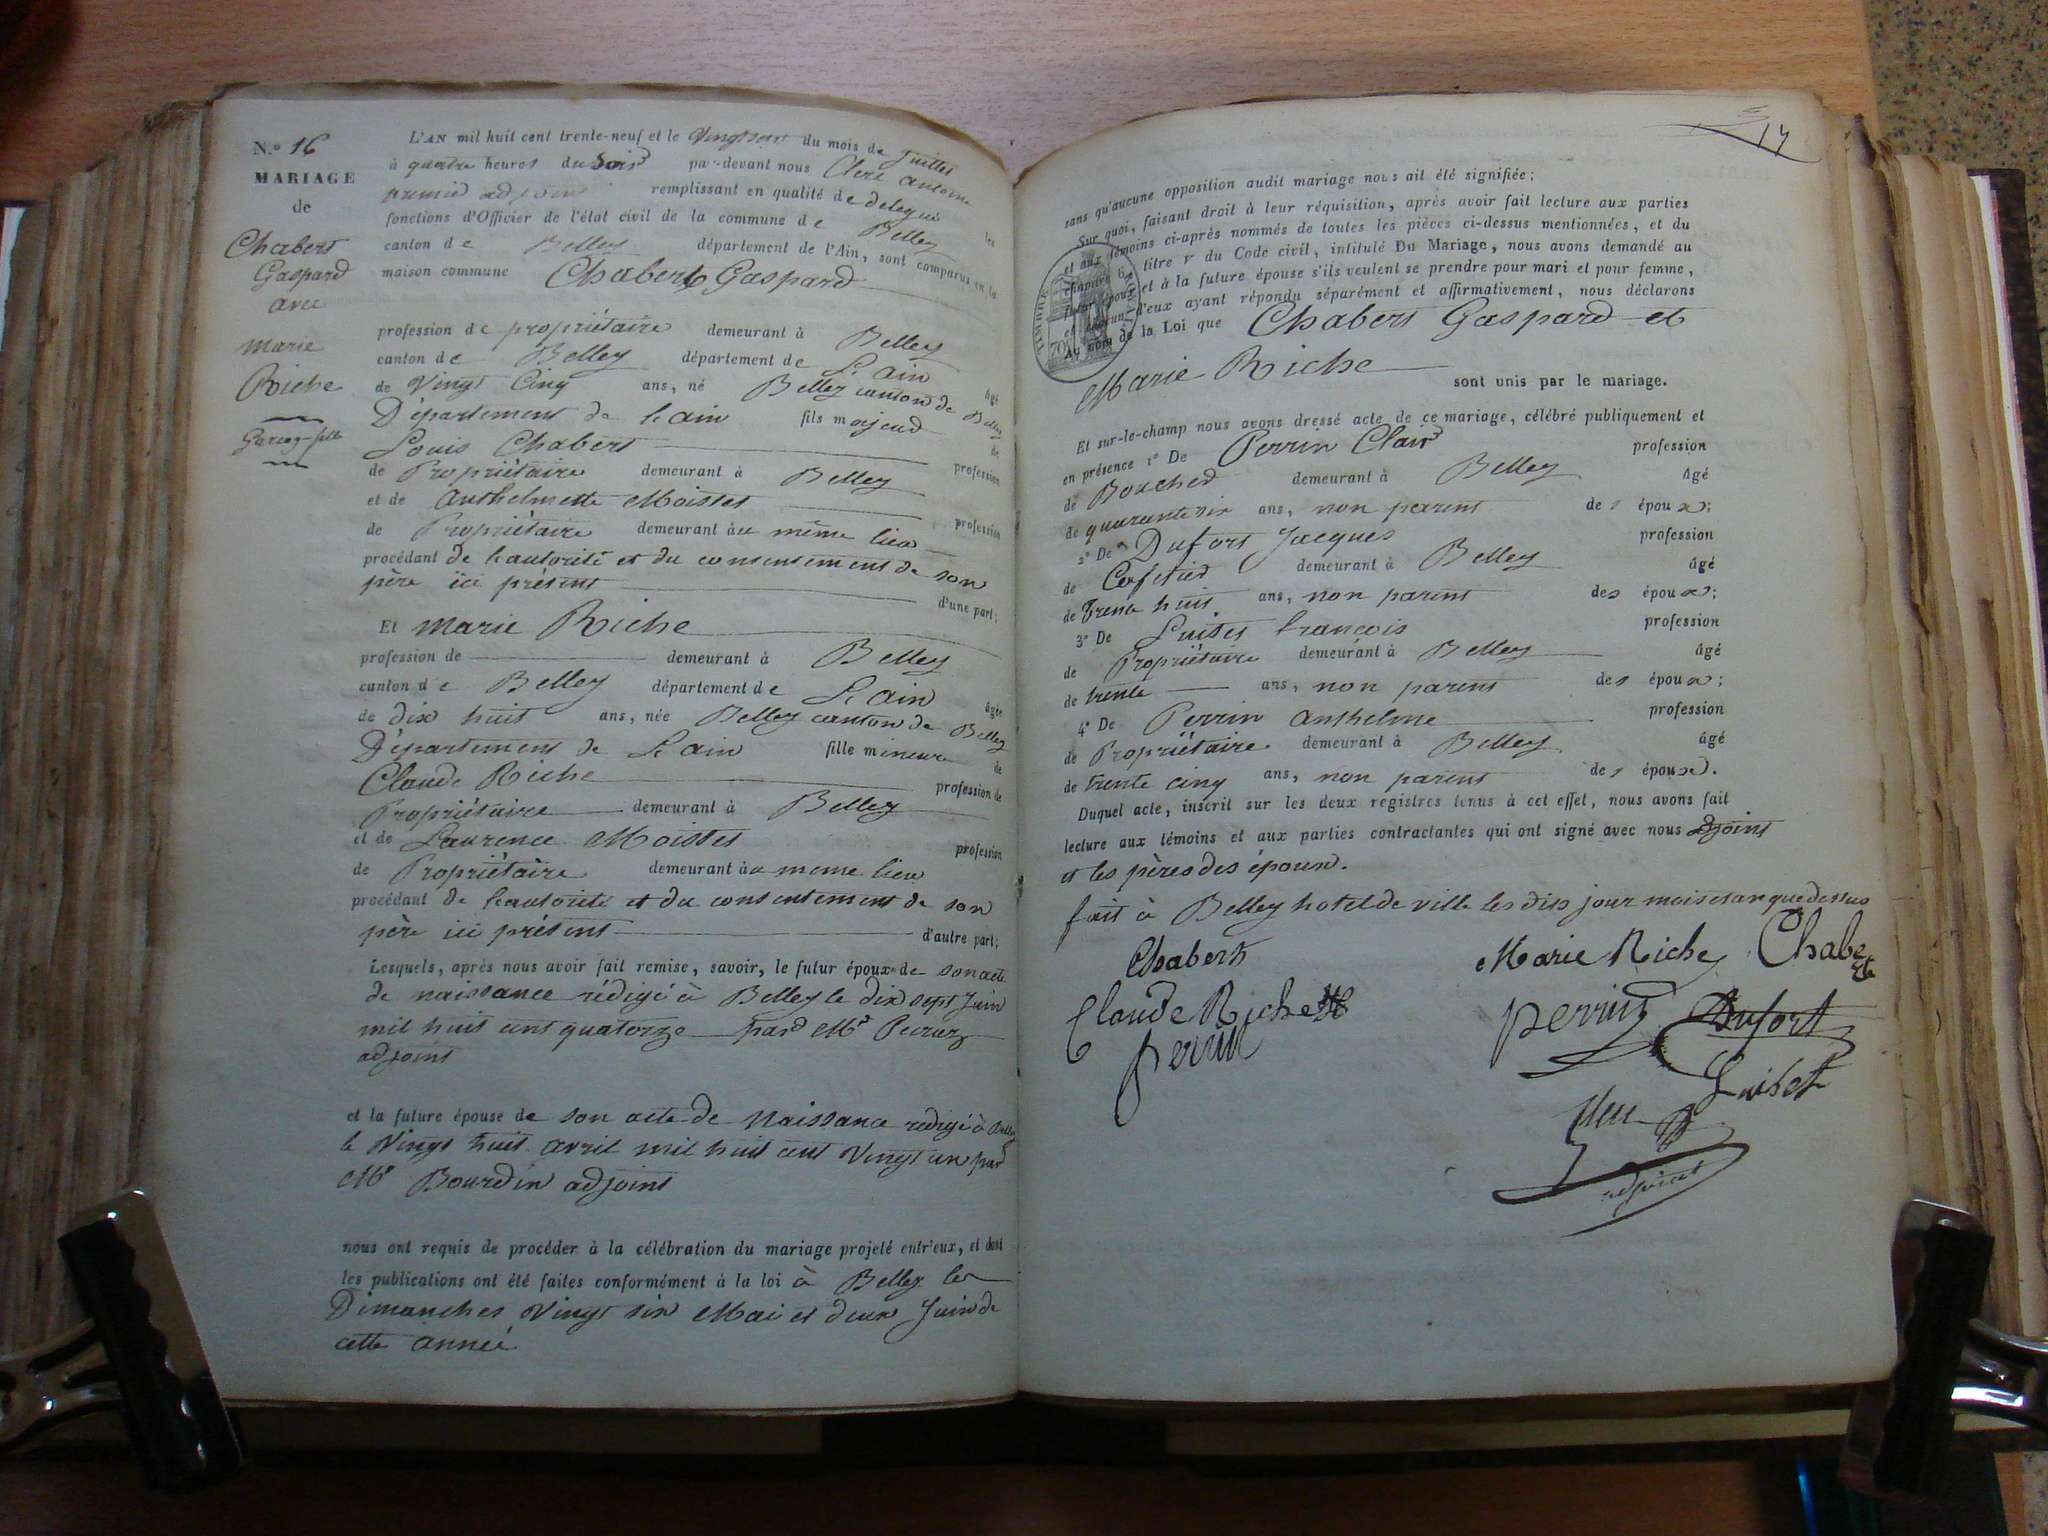 N.º 16
MARIAGE
de
Chabert
Gaspard
avec
marie
Riche
Garçon-fille
L'AN mil huit cent trente-neuf et le du mois de Juillet
à quatre heures du Soir par-devant nous Clerc antoine
premier adjoint remplissant en qualité de delegué les
fonctions d'Officier de l'état civil de la commune de Belley
canton de Belley département de l'Ain, sont comparus en la
maison commune Chabert Gaspard
profession de propriétaire demeurant à Belley
canton de Belley département de L'ain âgé
de Vingt Cinq ans, né Belley canton de Belley
Département de L'ain fils majeur de
Louis Chabert profession
de Propriétaire demeurant à Belley
et de Anthelmette Moisset profession
de Propriétaire demeurant àu même lieu
procédant de L'autorité et du consentement de son
père ici présent d'une part;
Et marie Riche
profession de demeurant à Belley
canton de Belley département de L'ain âgée
de dix huit ans, née Belley canton de Belley
Département de L'ain fille mineure de
Claude Riche profession de
Propriétaire demeurant à Belley
et de Laurence Moisset profession
de Propriétaire demeurant àu meme lieu
procédant de L'autorité et du consentement de son
père ici présent d'autre part;
Lesquels, après nous avoir fait remise, savoir, le futur époux de son acte
de naissance rédigé à Belley le dix sept Juin
mil huit cent quatorze par Mr
adjoint
et la future épouse de son acte de Naissance redigé à Belley
le Vingt huit avril mil huit cent Vingt un par
Mr Bourdin adjoint
nous ont requis de procéder à la célébration du mariage projeté entr'eux, et dont
les publications ont été faites conformément à la loi à Belley les
Dimanches Vingt six Mai et deux Juin de
cette année
17
sans qu'aucune opposition audit mariage nous ait été signifiée;
Sur quoi, faisant droit à leur réquisition, après avoir fait lecture aux parties
et aux témoins ci-après nommés de toutes les pièces ci-dessus mentionnées, et du
chapitre 6 titre v du Code civil, intitulé Du Mariage, nous avons demandé au
futur époux et à la future épouse s'ils veulent se prendre pour mari et pour femme,
et chacun d'eux ayant répondu séparément et affirmativement, nous déclarons
Au nom de la Loi que Chabert Gaspard et
Marie Riche sont unis par le mariage.
Et sur-le-champ nous avons dressé acte de ce mariage, célébré publiquement et
en présence 1º De Perrin Clair profession
de Boucher demeurant à Belley âgé
de quarante six ans, non parent des époux;
2º De Dufort Jacques profession
de Cafetier demeurant à Belley âgé
de Trente huit ans, non parent des époux;
3º De Luiset françois profession
de Propriétaire demeurant à Belley âgé
de trente ans, non parent des époux;
4º De Perrin Anthelme profession
de Propriétaire demeurant à Belley âgé
de trente cinq ans, non parent des époux.
Duquel acte, inscrit sur les deux registres tenus à cet effet, nous avons fait
lecture aux témoins et aux parties contractantes qui ont signé avec nous adjoint
et les pères des époux.
fait à Belley hotel de ville les dits jour mois et an que dessus
Chabert Marie Riche Chabert
Claude Riche perrin Dufort
perrin Luiset
adjoint
TIMBRE ROYAL
70